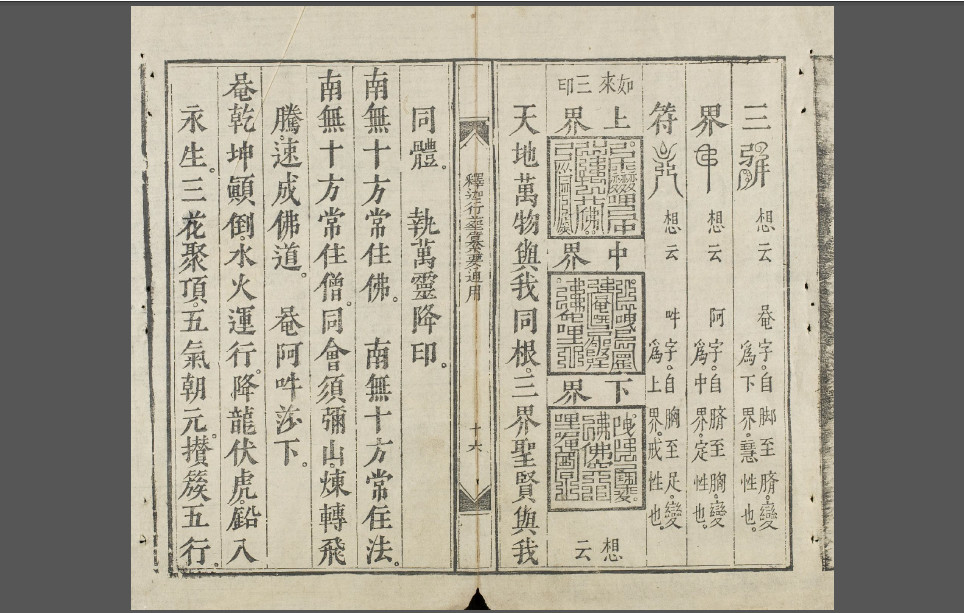 三 想云 菴字。自脚至臍。變為下界。慧性也。
界 想云 阿字。自臍至胸。變為中界。定性也。
符 想云 吽字。自胸至足。變為上界。戒性也。
如來三印
上界 中界 下界 想云
天地萬物與我同根。三界聖賢與我
釋迦行 要通用
十六
同體。 執萬靈降印。
南無十方常住佛。 南無十方常住法。
南無十方常住僧。同會須彌山。煉轉飛
騰。速成佛道。 菴阿吽莎下。
菴乾坤顛倒。水火運行。降龍伏虎。鉛入
永生。三花聚頂。五氣朝元。攅簇五行。